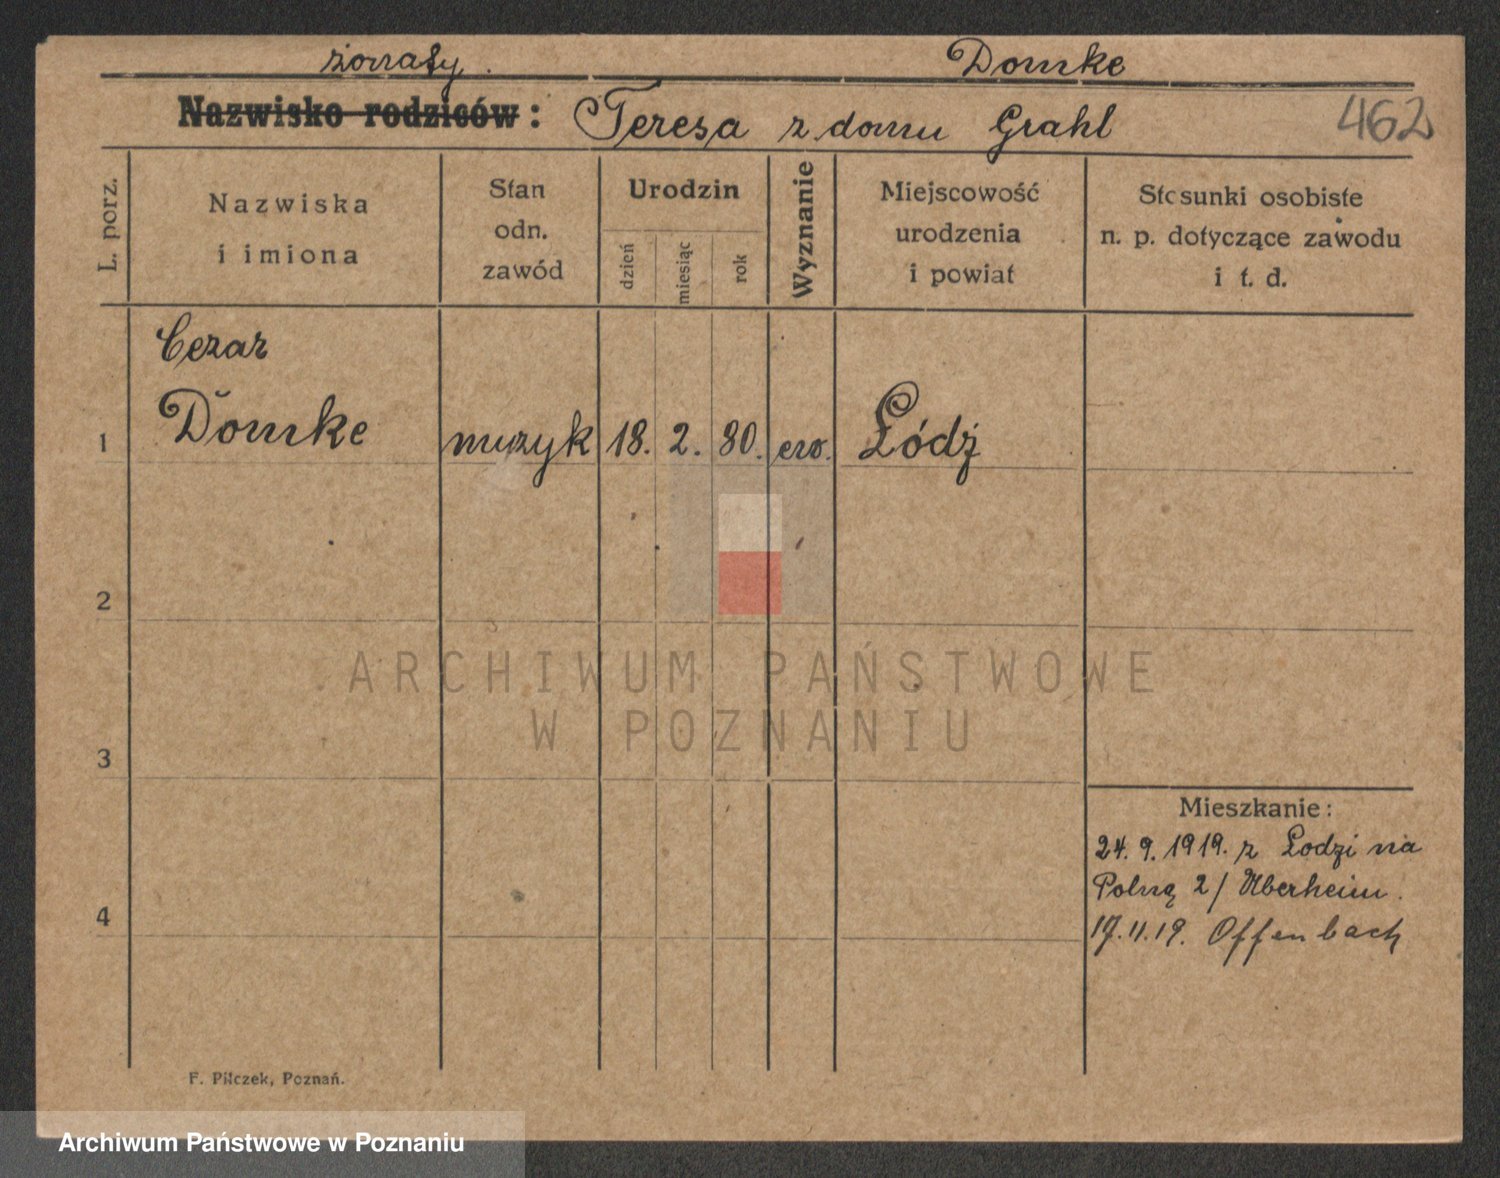 żonaty. Domke
Nazwisko rodziców: Teresa z domu Grahl 462
L. porz.
Nazwiska
i imiona
Stan
odn.
zawód
Urodzin
dzień
miesiąc
rok
Wyznanie
Miejscowość
urodzenia
i powiat
Stosunki osobiste
n. p. dotyczące zawodu
i t. d.
Cezar
1 Domke muzyk 18. 2. 80. ew. Łódź
2
ARCHIWUM PAŃSTWOWE
W POZNANIU
3
Mieszkanie:
24. 9. 1919. z Łodzi na
4 Polną 2/ Überheim.
17. 11. 19. Offenbach
F. Pilczek, Poznań.
Archiwum Państwowe w Poznaniu